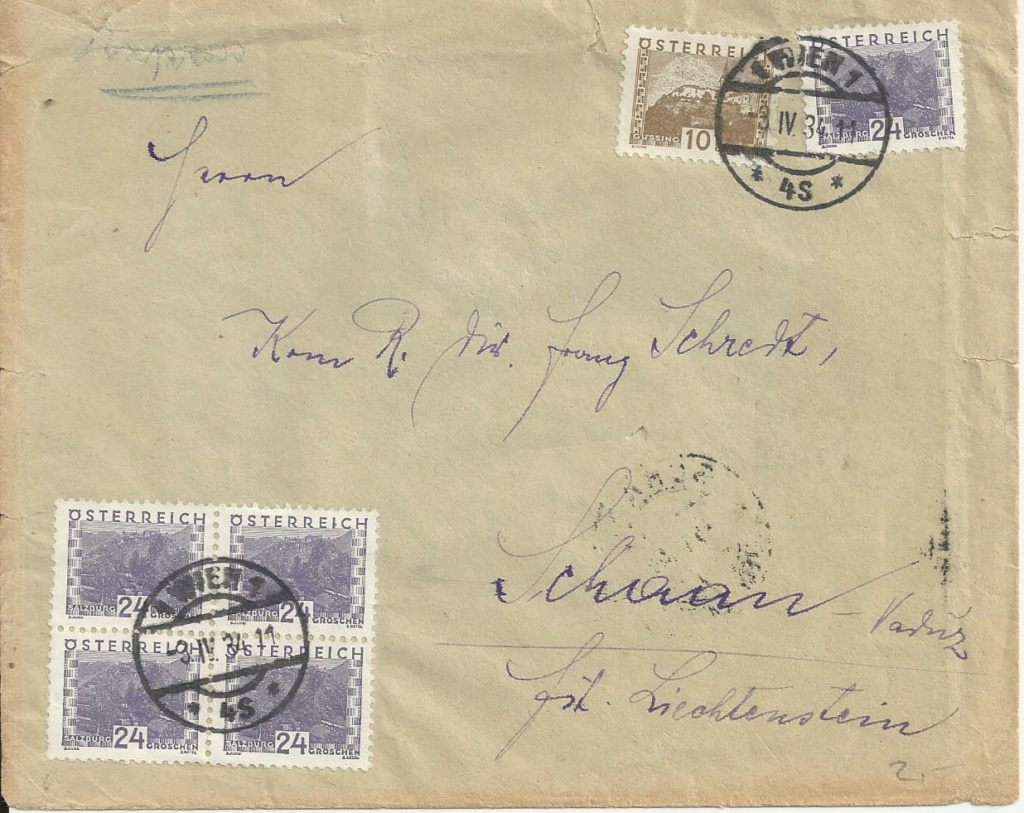 ÖSTERREICH
GÜSSING 10
ÖSTERREICH
SALZBURG 24 GROSCHEN
WIEN 1
-3.IV.34.11
* 4S *
Herrn
Kom R. Dir. Franz Schredt,
Schaan - Vaduz
Fst. Liechtenstein
2.-
ÖSTERREICH ÖSTERREICH
SALZBURG 24 GROSCHEN SALZBURG 24 GROSCHEN
WIEN 1
-3.IV.34.11
* 4S *
ÖSTERREICH ÖSTERREICH
SALZBURG 24 GROSCHEN SALZBURG 24 GROSCHEN